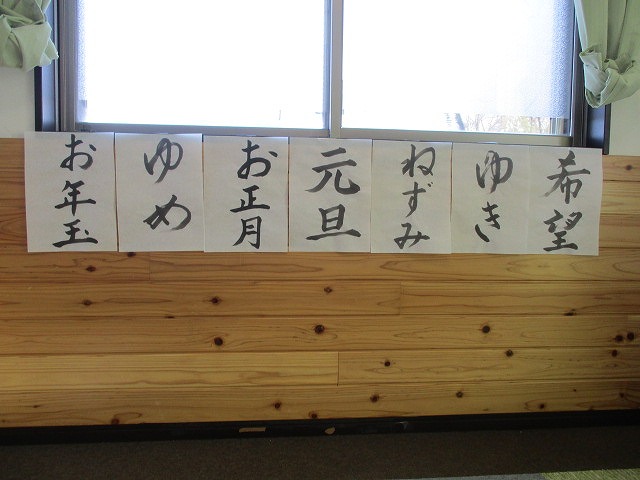 希望
ゆき
ねずみ
元旦
お正月
ゆめ
お年玉